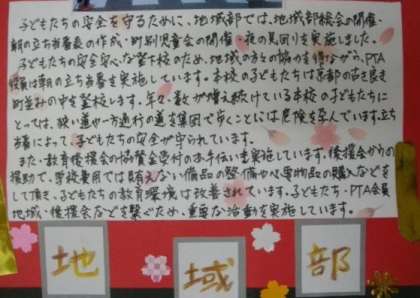 子どもたちの安全を守るために、地域部では、地域部総会の開催・
朝の立ち当番表の作成・町別児童会の開催・夜の見回りを実施しました。
子どもたちの安全安心な登下校のため、地域の方々の協力を得ながら、PTA
役員は朝の立ち当番を実施しています。本校の子どもたちは京都の古き良き
町並みの中を登校します。年々、数が増え続けている本校の子どもたちに
とっては、狭い道や一方通行の道を集団で歩くことには危険を孕んでいます。立ち
当番によって、子どもたちの安全が守られています。
また、教育後援会の協賛金受付のお手伝いも実施しています。後援会からの
援助で、学校費用では賄えない備品の整備や必要物品の購入などをし
て頂き、子どもたちの教育環境は改善されています。子どもたち・PTA会員
地域・後援会などを繋ぐため、重要な活動を実施しています。
地域部